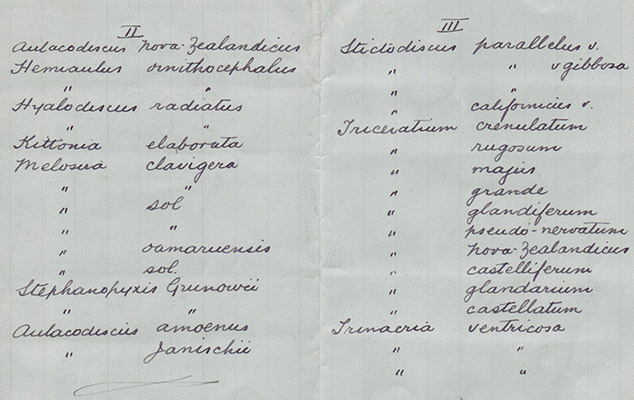 II
Aulacodiscus nova-zealandicus
Hemiaulus ornithocephalus
" "
Hyalodiscus radiatus
" "
Kittonia elaborata
Melosira clavigera
" "
" sol
" "
" oamaruensis
" sol.
Stephanopyxis Grunowii
" "
Aulacodiscus amoenus
" Janischii
III
Stictodiscus parallelus v.
" " v gibbosa
" "
" californicus v.
Triceratium crenulatum
" rugosum
" majus
" grande
" glandiferum
" pseudo-nervatum
" nova-zealandicus
" castelliferum
" glandarium
" castellatum
Trinacria ventricosa
" "
" "